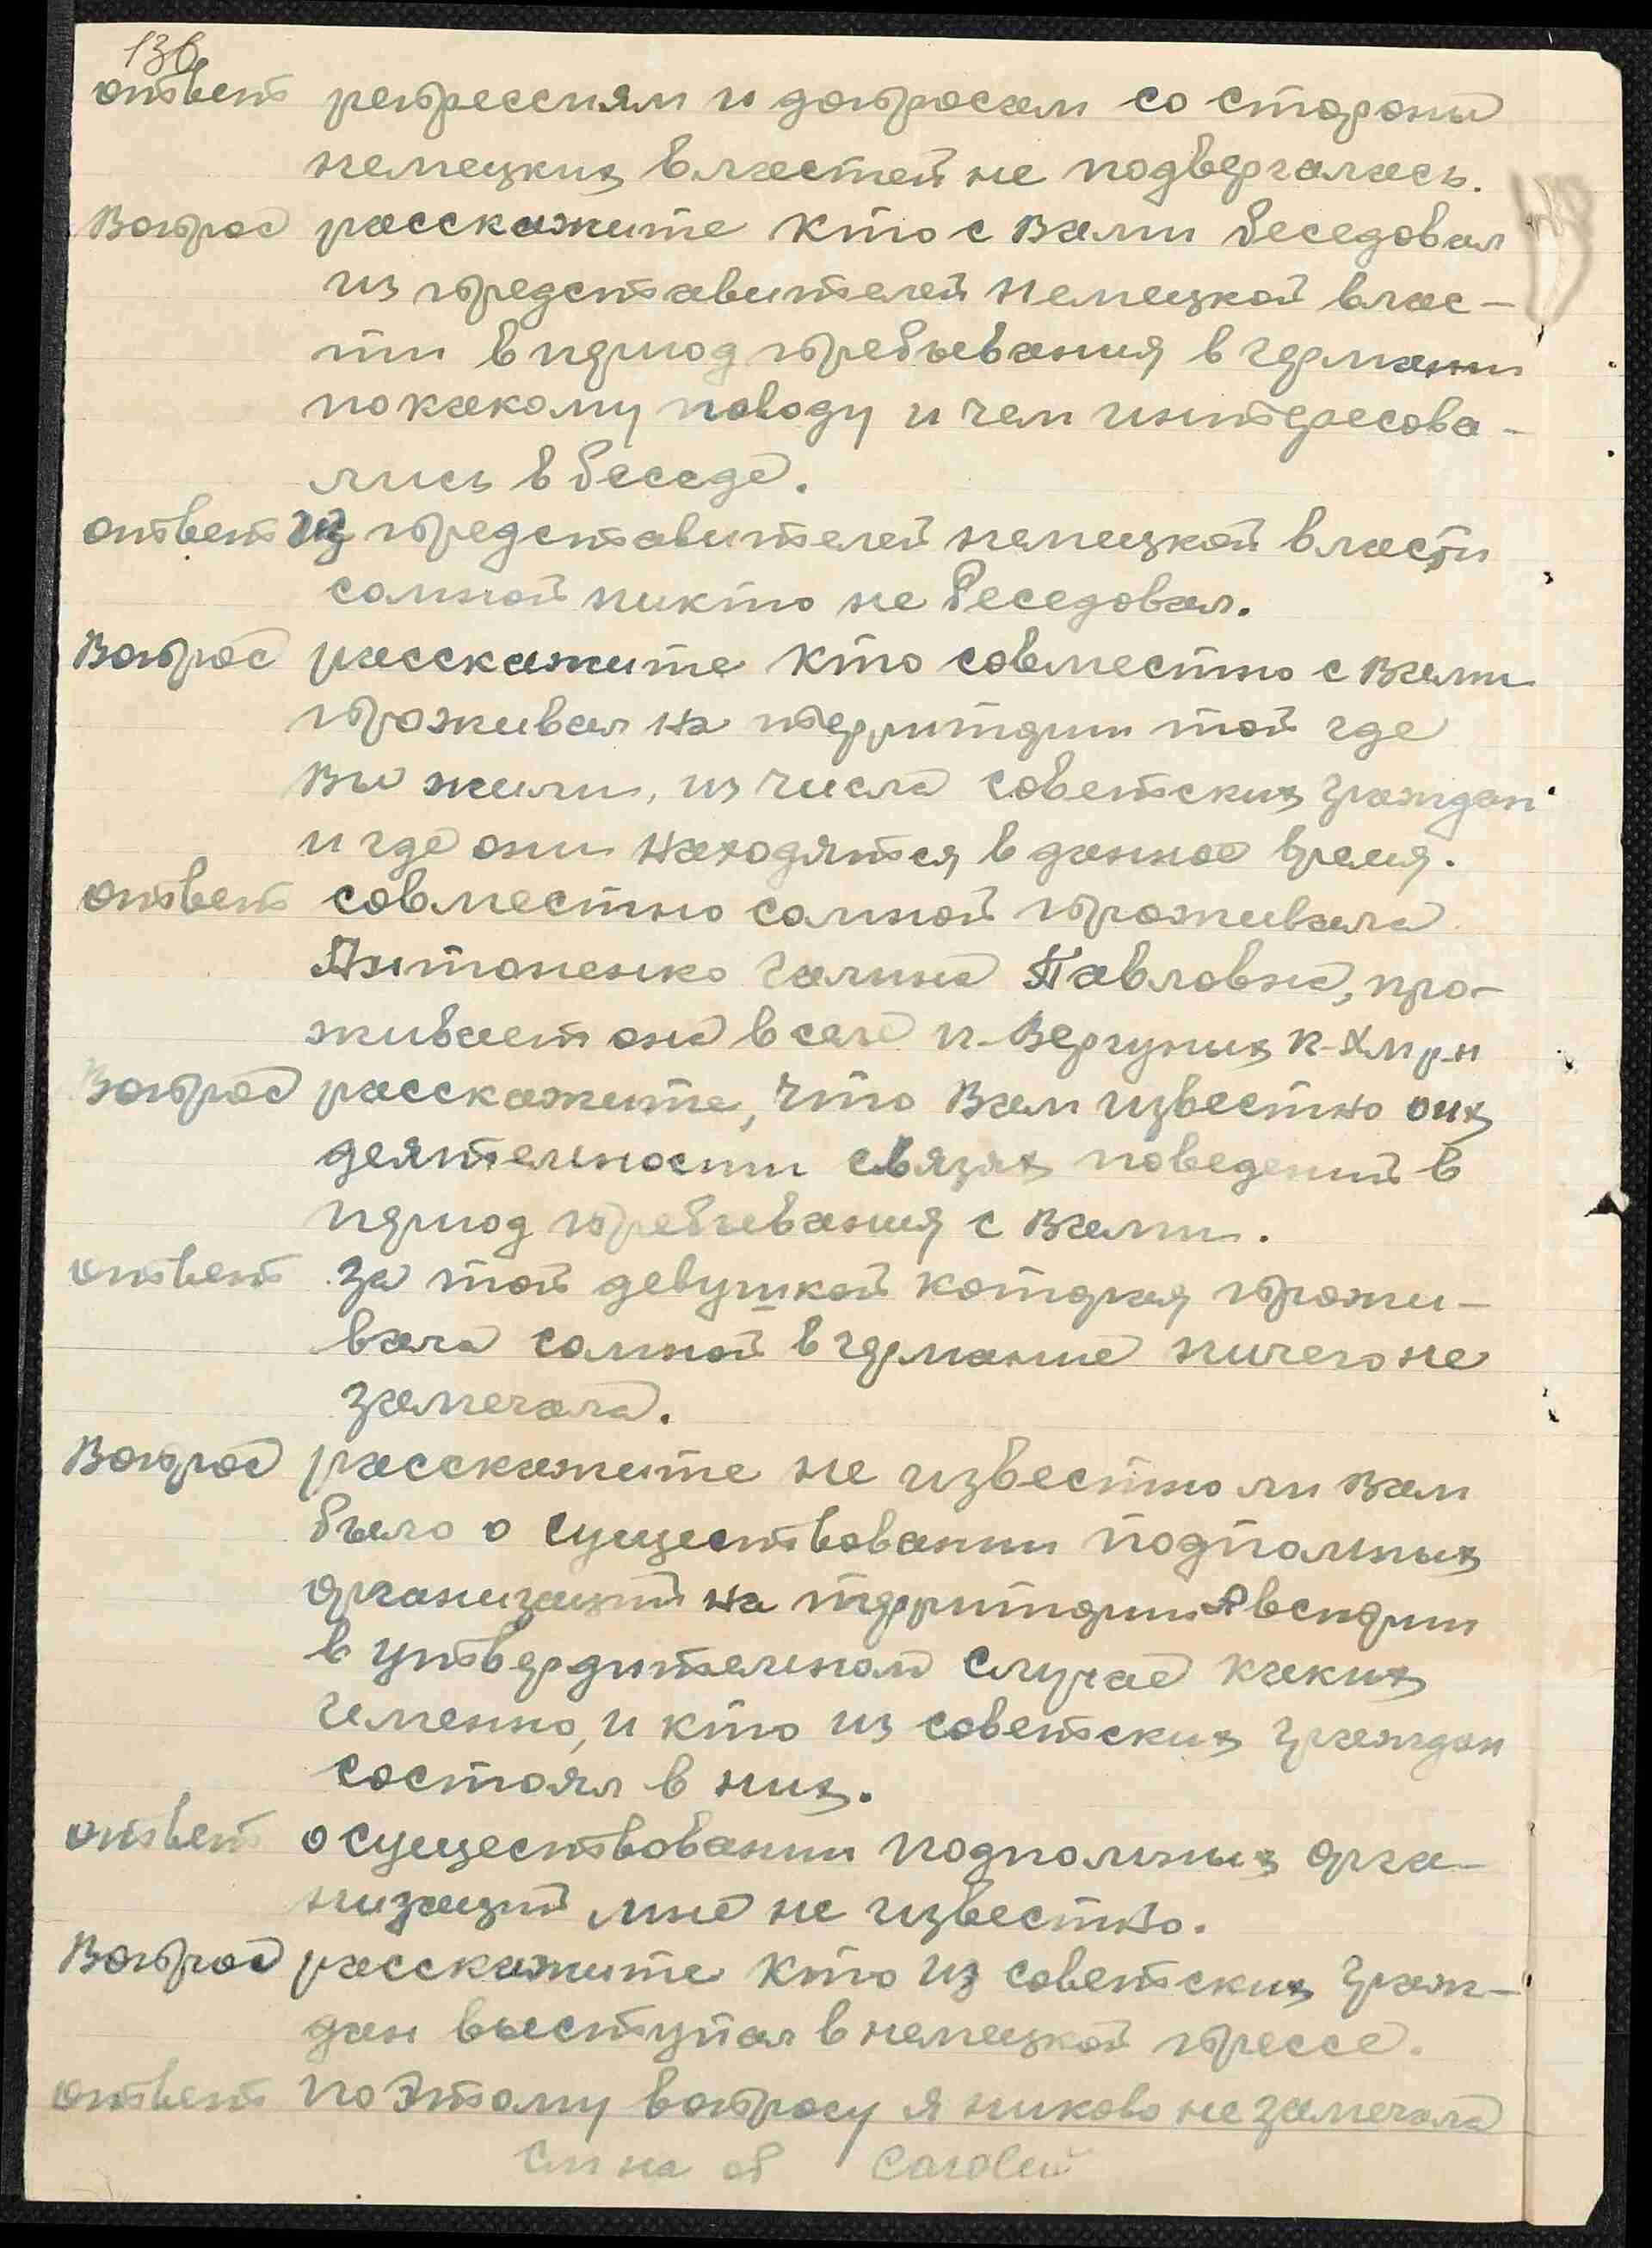 136
ответ репрессиям и допросам со стороны
немецких властей не подвергалась.
Вопрос расскажите кто с Вами беседовал
из представителей немецкой влас-
ти в период пребывания в германи
по какому поводу и чем интересова-
лись в беседе.
ответ из представителей немецкой власти
сомной никто не беседовал.
Вопрос расскажите кто совместно с Вами
проживал на территории той где
Вы жили, из числа советских граждан
и где они находятся в данное время.
ответ совместно сомной проживала
Антоненко Галина Павловна, про-
живает она в селе н-Вергунах к-Хм р-н
Вопрос расскажите, что Вам известно оих
деятельности связях поведений в
период пребывания с Вами.
ответ за той девушкой которая прожи-
вала сомной в германие ничего не
замечала.
Вопрос расскажите не известно ли Вам
было о существовании подпольных
организаций на территории Австрии
в утвердительном случае каких
именно, и кто из советских граждан
состоял в них.
ответ о существовании подпольных орга-
низаций мне не известно.
Вопрос расскажите кто из советских граж-
дан выступал в немецкой прессе.
ответ по этому вопросу я никово не замечала
См на об Соловей